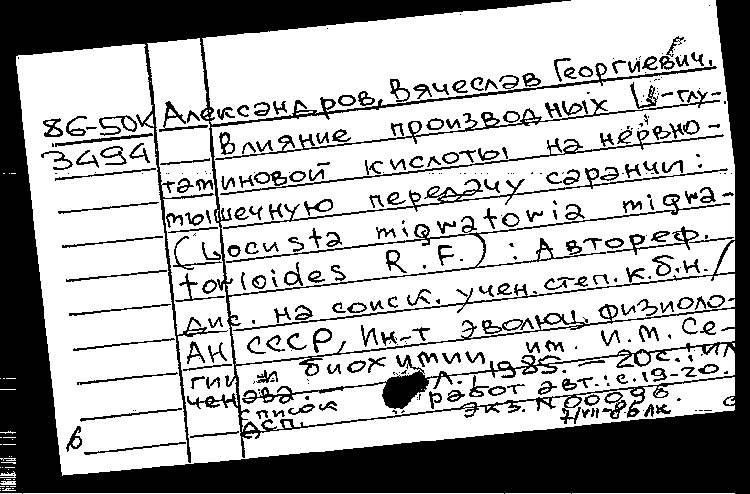 86-50К Александров, Вячеслав Георгиевич.
3494 Влияние производных L-глу-
таминовой кислоты на нервно-
мышечную передачу саранчи:
(Locusta migratoria migra-
torioides R.F.) : Автореф.
дис. на соиск. учен. степ. к.б.н. /
АН СССР, Ин-т эволюц. физиоло-
гии и биохимии им. И.М. Се-
ченова. - Л., 1985. - 20с.: ил
список работ авт.: с.19-20.
дсп. экз. N 00096.
7/VII-86 лк
в